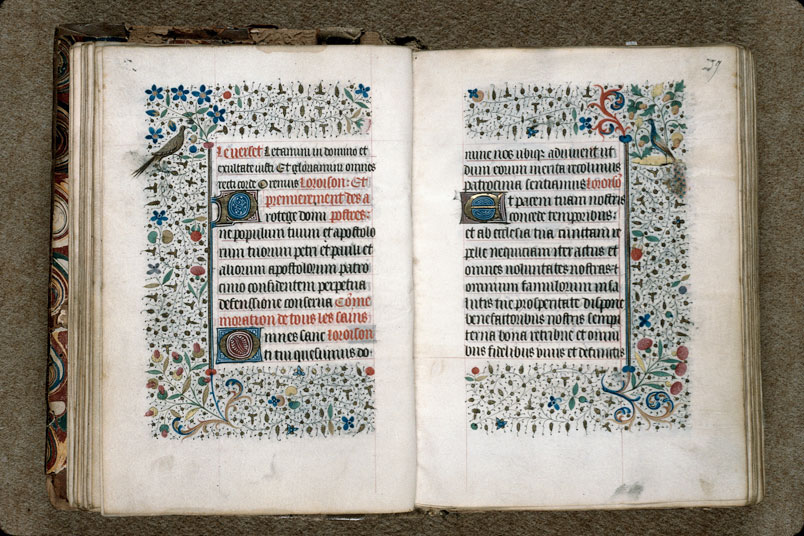 Le verset Letamini in domino et
exultate iusti Et gloriamini omnes
recti corde Oremus Loroison: Et
premierement des a
Protege domi postres:
ne populum tuum et apostolo
rum tuorum petri et pauli et
aliorum apostolorum patro
cinio confidentem perpetua
defensione conserva Come
moration de tous les sains
Omnes sanc Loroison
ti tui quesumus do
nunc nos ubiq adiuvent ut
dum eorum merita recolimus
patrocinia sentiamus Loroiso
Et pacem tuam nostris
concede temporibus:
et ab ecclesia tua cunctam re
pelle nequiciam iter actus et
omnes voluntates nostras et
omnium famulorum in sa
lutis tue prosperitate dispone
benefactoribus nostris sempi
terna bona retribue et omni
bus fidelibus vivis et defunctis